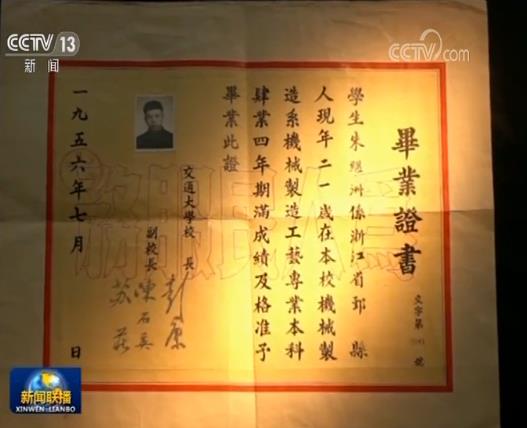 CCTV 13
新闻
CCTV.com
畢業證書
交字第 號
學生朱繼洲係浙江省鄞縣
人現年二一歲在本校機械製
造系機械製造工藝專業本科
肄業四年期滿成績及格准予
畢業此證
交通大學校 長 彭康
副校長 陳石英
蘇莊
一九五六年七月 日
為人民服務
新闻联播
XINWEN LIANBO